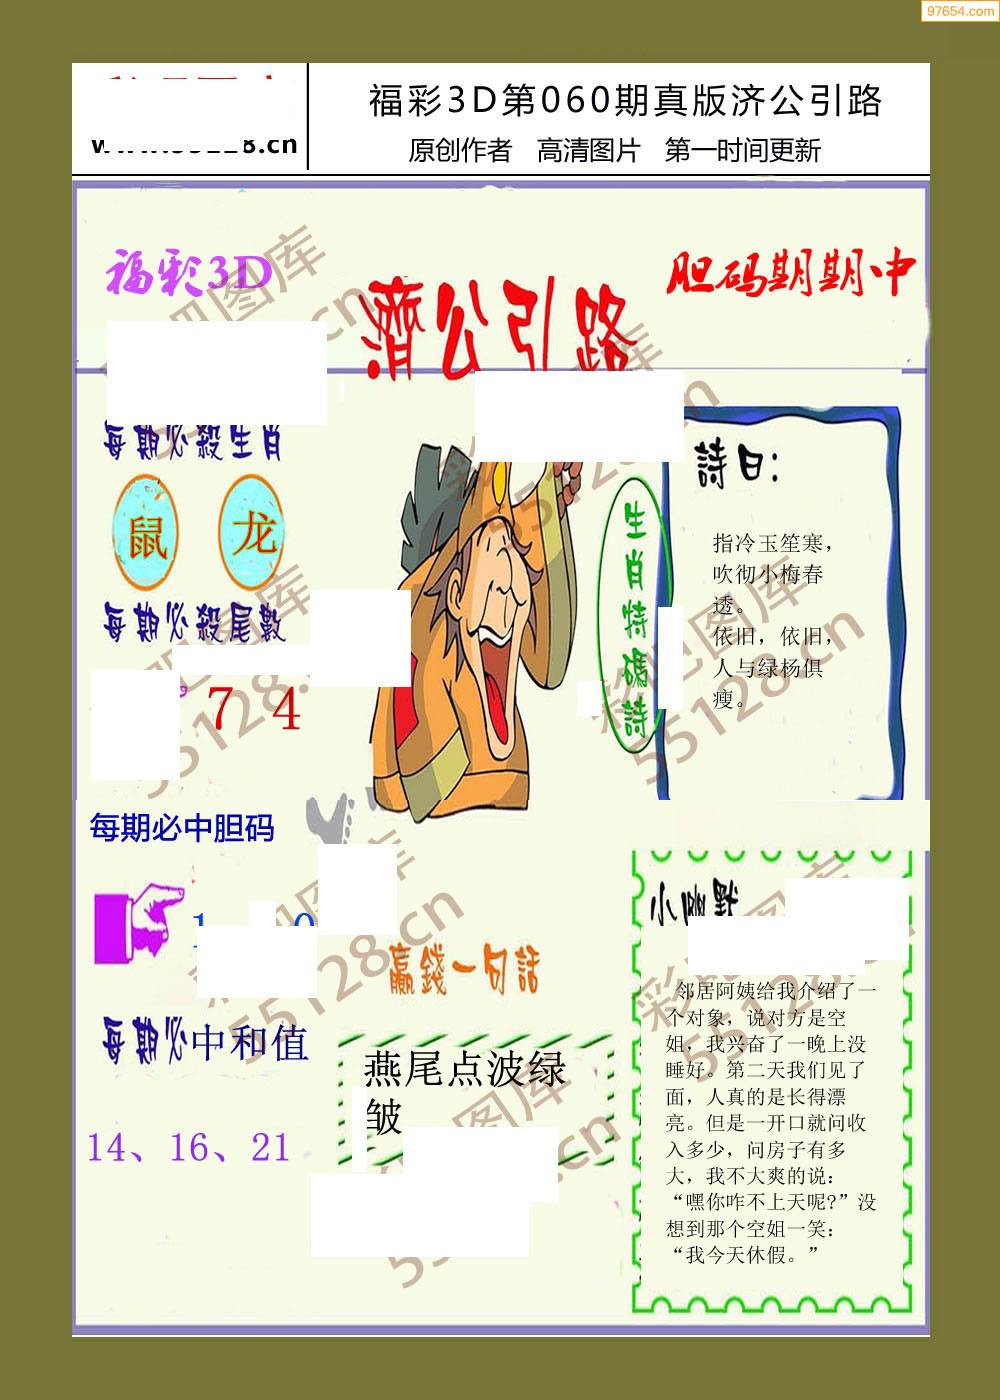 97654.com
福彩3D第060期真版济公引路
原创作者 高清图片 第一时间更新
福彩3D
濟公引路
胆码期期中
每期必殺生肖
鼠 龙
每期必殺尾數
7 4
生肖特碼詩
詩曰：
指冷玉笙寒，
吹彻小梅春
透。
依旧，依旧，
人与绿杨俱
瘦。
每期必中胆码
每期必中和值
14、16、21
贏錢一句話
燕尾点波绿
皱
小幽默
邻居阿姨给我介绍了一
个对象，说对方是空
姐，我兴奋了一晚上没
睡好。第二天我们见了
面，人真的是长得漂
亮。但是一开口就问收
入多少，问房子有多
大，我不大爽的说：
“嘿你咋不上天呢?”没
想到那个空姐一笑：
“我今天休假。”
彩吧图库
55128.cn